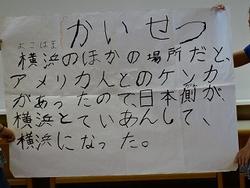 かいせつ
よこはま
横浜のほかの場所だと、
アメリカ人とのケンカ
があったので、日本側が、
横浜とていあんして、
横浜になった。